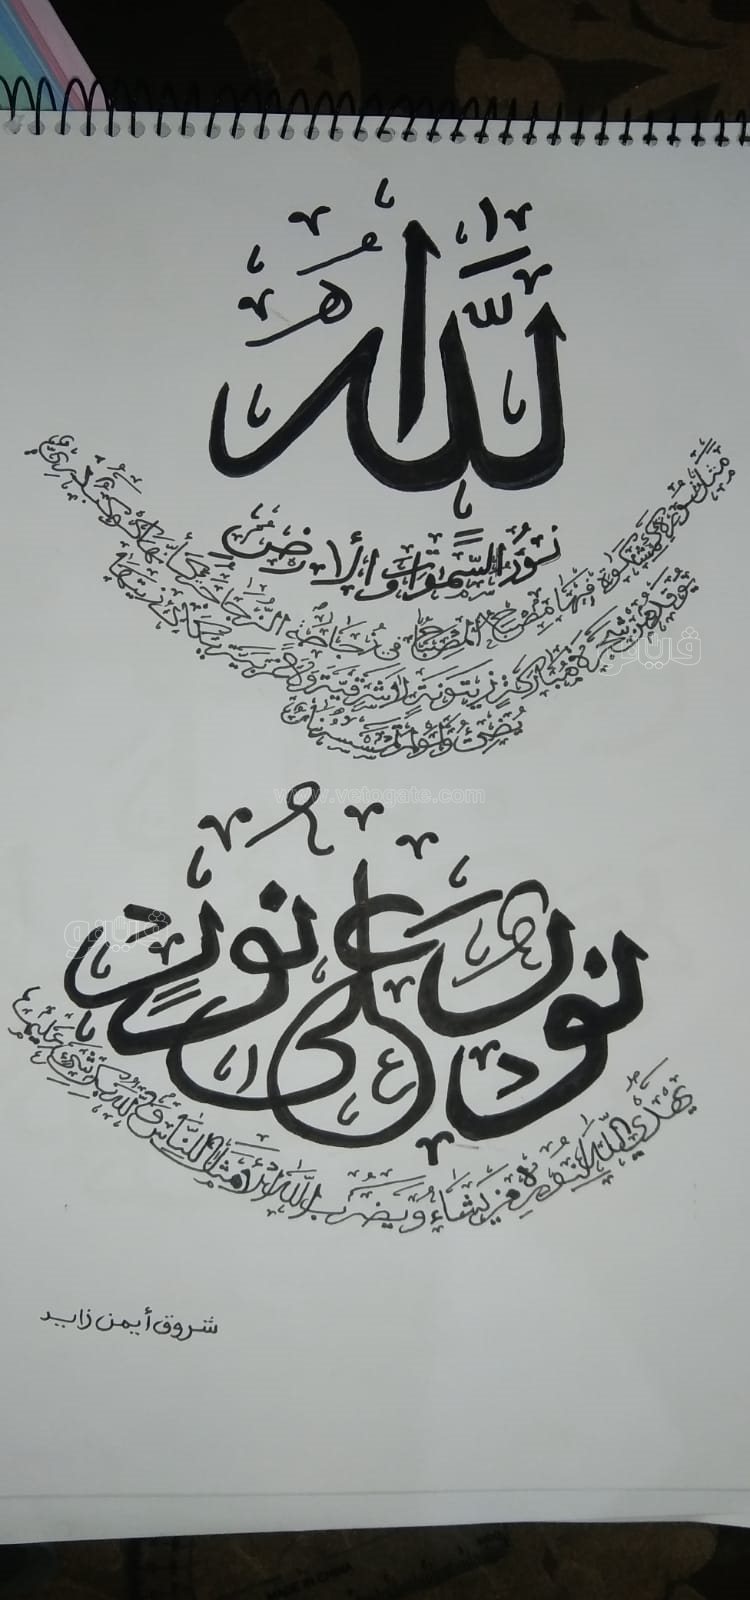 الله
نُورُ السَّمٰوَاتِ وَالْأَرْضِ
مَثَلُ نُورِهِ كَمِشْكَاةٍ فِيهَا مِصْبَاحٌ الْمِصْبَاحُ فِي زُجَاجَةٍ الزُّجَاجَةُ كَأَنَّهَا كَوْكَبٌ دُرِّيٌّ
يُوقَدُ مِن شَجَرَةٍ مُبَارَكَةٍ زَيْتُونَةٍ لَا شَرْقِيَّةٍ وَلَا غَرْبِيَّةٍ يَكَادُ زَيْتُهَا
يُضِيءُ وَلَوْ لَمْ تَمْسَسْهُ نَارٌ
فيتو
www.vetogate.com
نُورٌ عَلَى نُورٍ
فيتو
يَهْدِي اللَّهُ لِنُورِهِ مَن يَشَاءُ وَيَضْرِبُ اللَّهُ الْأَمْثَالَ لِلنَّاسِ وَاللَّهُ بِكُلِّ شَيْءٍ عَلِيمٌ
شروق أيمن زايد